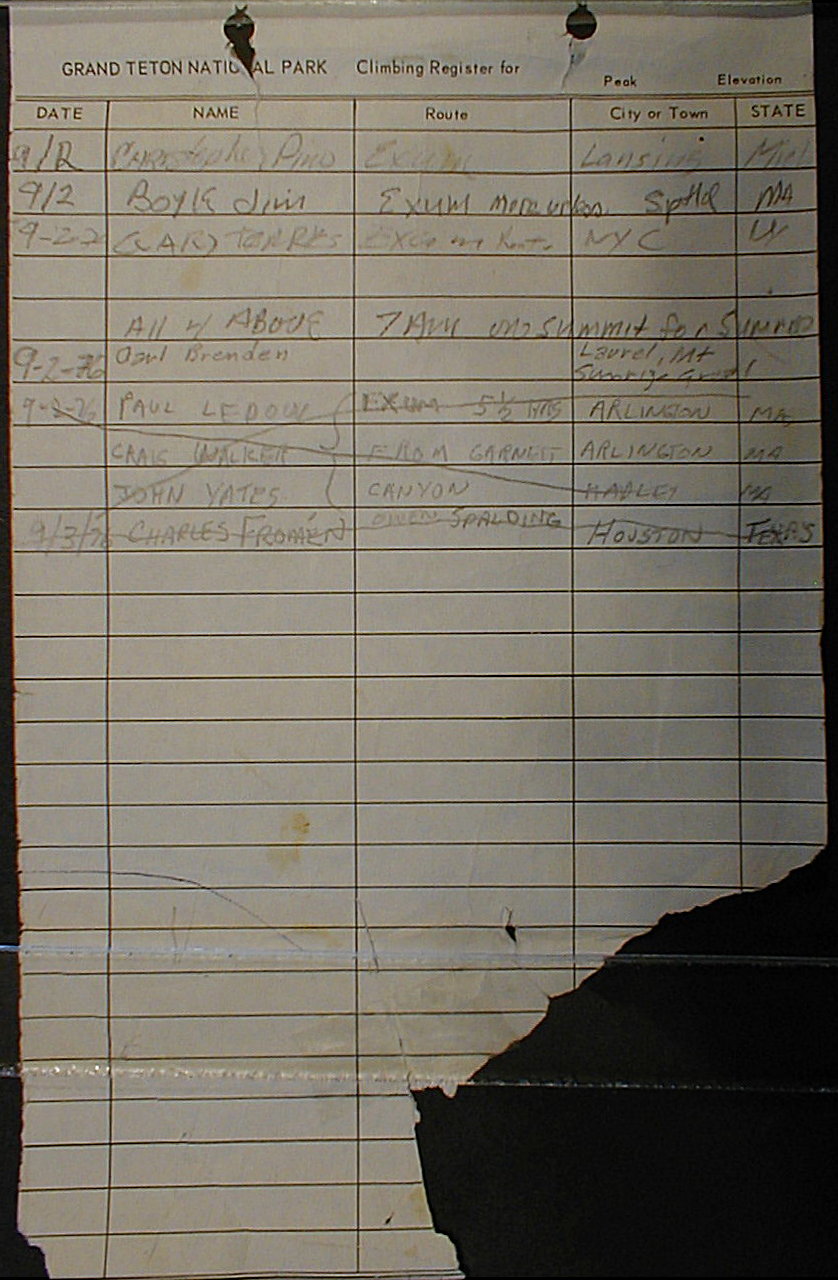 GRAND TETON NATIONAL PARK Climbing Register for
Peak Elevation
DATE NAME Route City or Town STATE
Christopher Pino Exum Lansing
9/2 BOYLE Jim EXUM Spfld MA
9-2-76 TORRES NYC
All of ABOVE 7 AM on Summit for Sunrise
9-2-76 Brenden Laurel, Mt
9-2-76 PAUL LEDOUX EXUM 5½ HRS ARLINGTON MA
CRAIG WALKER FROM GARNETT ARLINGTON MA
JOHN YATES CANYON HADLEY MA
9/3/76 CHARLES FROMÉN OWEN SPALDING HOUSTON TEXAS